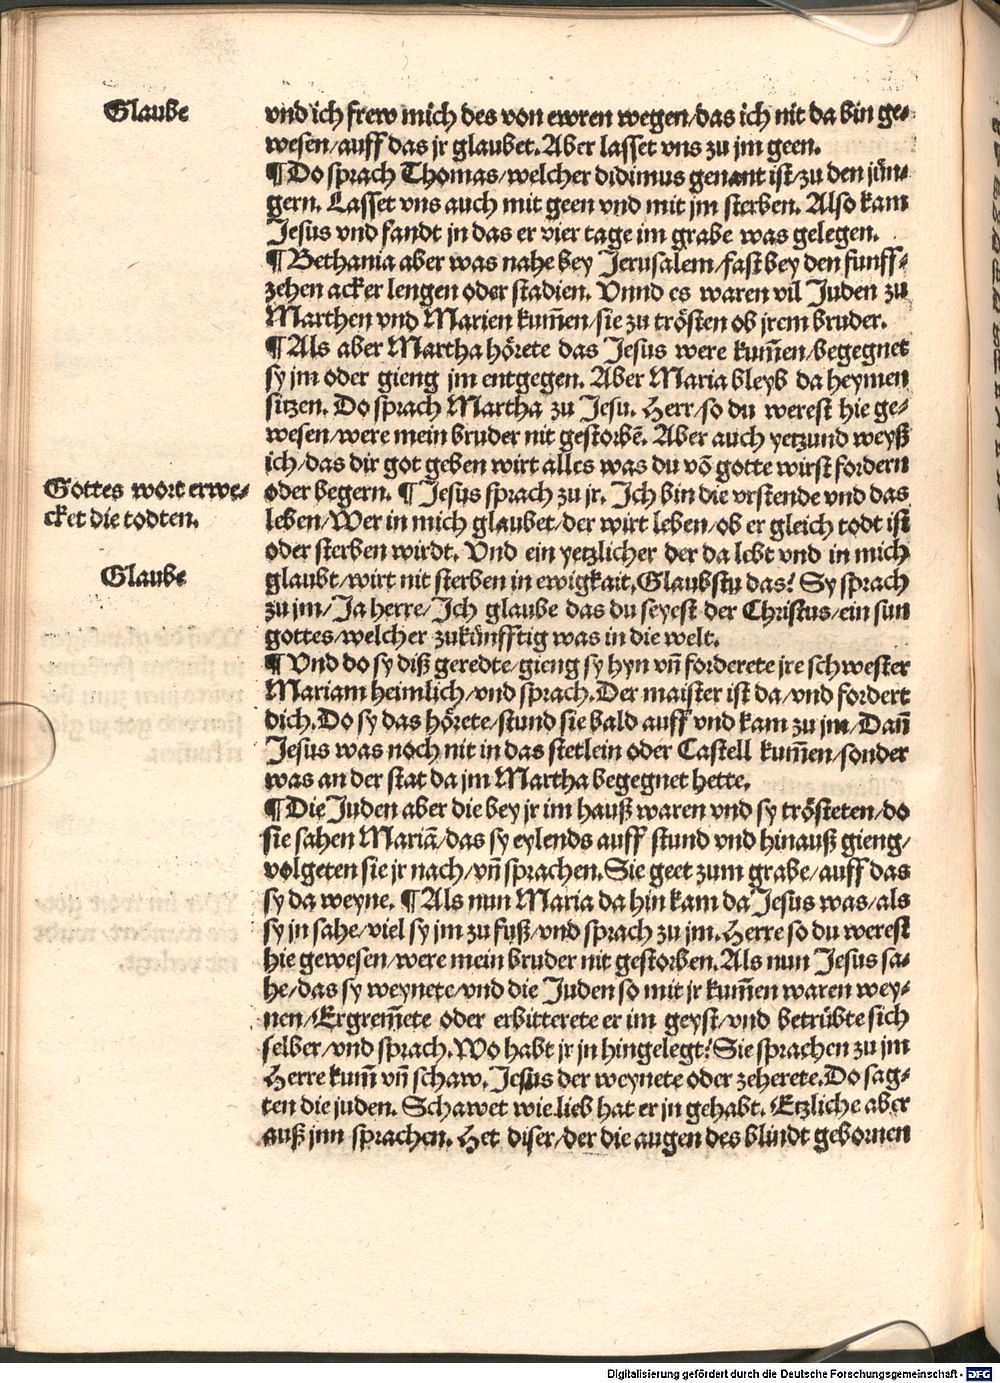 Glaube
vnd ich frew mich des von ewren wegen/das ich nit da bin ge⸗
wesen/auff das jr glaubet. Aber lasset vns zu jm geen.
¶ Do sprach Thomas/welcher didimus genant ist/zu den jün⸗
gern. Lasset vns auch mit geen vnd mit jm sterben. Also kam
Jesus vnd fandt jn das er vier tage im grabe was gelegen.
¶ Bethania aber was nahe bey Jerusalem/fast bey den funff⸗
zehen acker lengen oder stadien. Vnnd es waren vil Juden zu
Marthen vnd Marien kum̄en/sie zu trösten ob jrem bruder.
¶ Als aber Martha hörete das Jesus were kum̄en/begegnet
sy jm oder gieng jm entgegen. Aber Maria bleyb da heymen
sitzen. Do sprach Martha zu Jesu. Herr/so du werest hie ge⸗
wesen/were mein bruder nit gestorbē. Aber auch yetzund weyß
ich/das dir got geben wirt alles was du vō gotte wirst fordern
Gottes wort erwe⸗
cket die todten.
oder begern. ¶ Jesus sprach zu jr. Ich bin die vrstende vnd das
leben/Wer in mich glaubet/der wirt leben/ob er gleich todt ist
oder sterben wirdt. Vnd ein yetzlicher der da lebt vnd in mich
Glaube
glaubt/wirt nit sterben in ewigkait. Glaubstu das? Sy sprach
zu jm/Ja herre/Ich glaube das du seyest der Christus/ein sun
gottes/welcher zukünfftig was in die welt.
¶ Vnd do sy diß geredte/gieng sy hyn vn̄ forderete jre schwester
Mariam heimlich/vnd sprach. Der maister ist da/vnd fordert
dich. Do sy das hörete/stund sie bald auff vnd kam zu jm/Dan̄
Jesus was noch nit in das stetlein oder Castell kum̄en/sonder
was an der stat da jm Martha begegnet hette.
¶ Die Juden aber die bey jr im hauß waren vnd sy trösteten/do
sie sahen Mariā/das sy eylends auff stund vnd hinauß gieng/
volgeten sie jr nach/vn̄ sprachen. Sie geet zum grabe/auff das
sy da weyne. ¶ Als nun Maria da hin kam da Jesus was/als
sy jn sahe/viel sy jm zu fuß/vnd sprach zu jm. Herre so du werest
hie gewesen/were mein bruder nit gestorben. Als nun Jesus sa⸗
he/das sy weynete/vnd die Juden so mit jr kum̄en waren wey⸗
nen/Ergrem̄ete oder erbitterete er im geyst/vnd betrübte sich
selber/vnd sprach. Wo habt jr jn hingelegt? Sie sprachen zu jm
Herre kum̄ vn̄ schaw. Jesus der weynete oder zeherete. Do sag⸗
ten die juden. Schawet wie lieb hat er jn gehabt. Etzliche aber
auß jnn sprachen. Het diser/der die augen des blindt gebornen
Digitalisierung gefördert durch die Deutsche Forschungsgemeinschaft - DFG